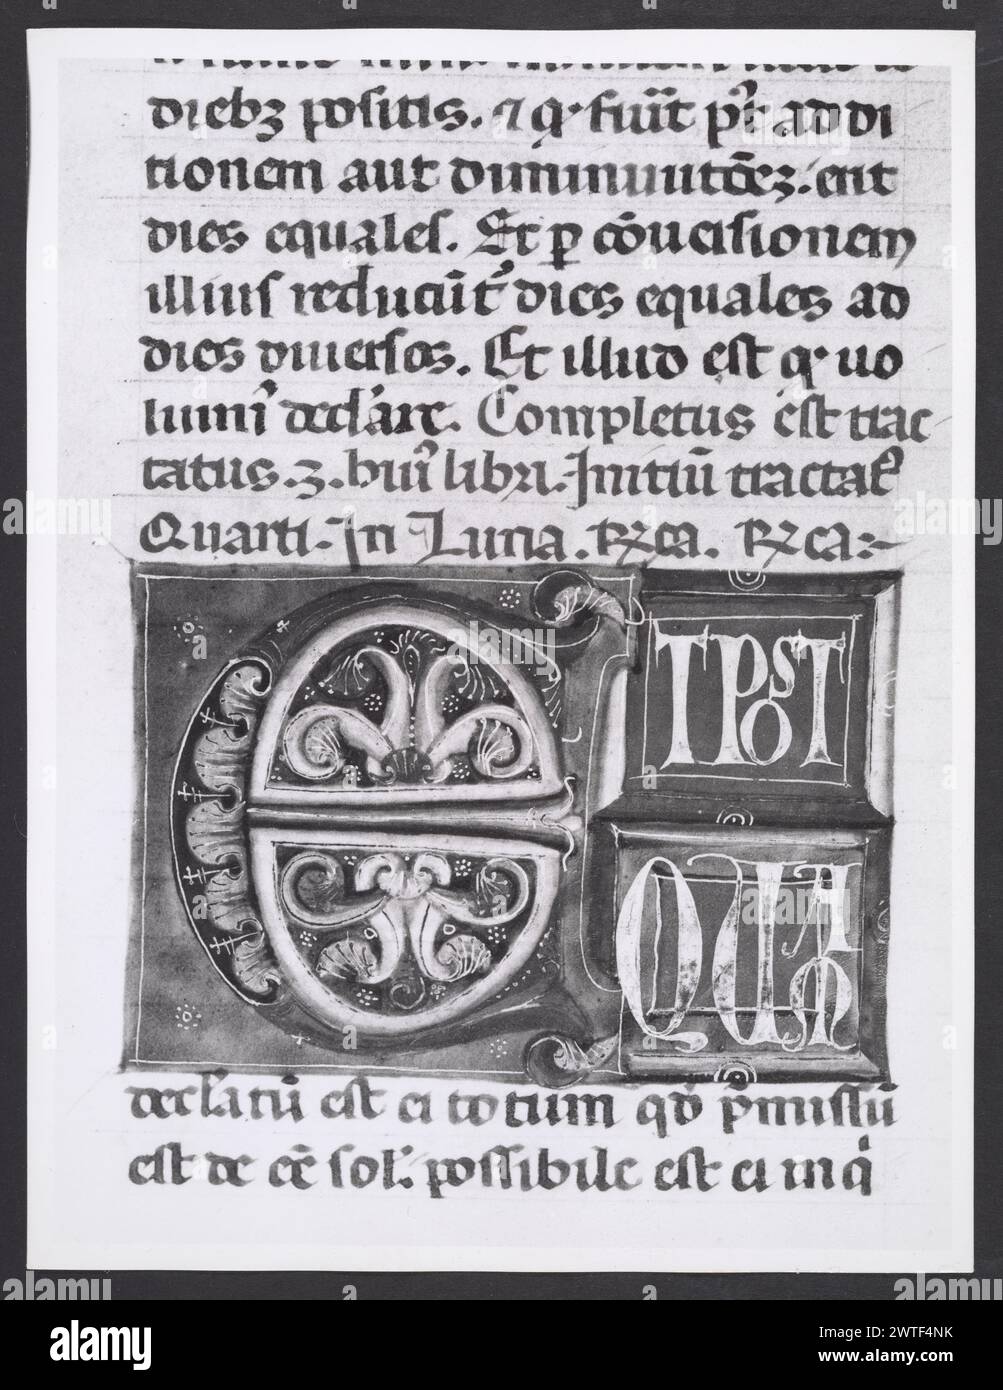 dieb⁊ positis. ⁊ q' fiūt p't ad di
tionem aut diminuutōe⁊. erit
dies equales. Et p cōuersionem
illius reducūt' dies equales ad
dies diuersos. Et illud est q' uo
lum' decl'are. Completus est trac
tatus .3. hui' libri. Initiū tractat'
Quarti. In Luna. R⁊ca. R⁊ca:-
E T POST
QUAM
decl'atū est ei totum qd p'missū
est de eē sol'. possibile est ei inq'
alamy
Image ID: 2WTF4NK
www.alamy.com